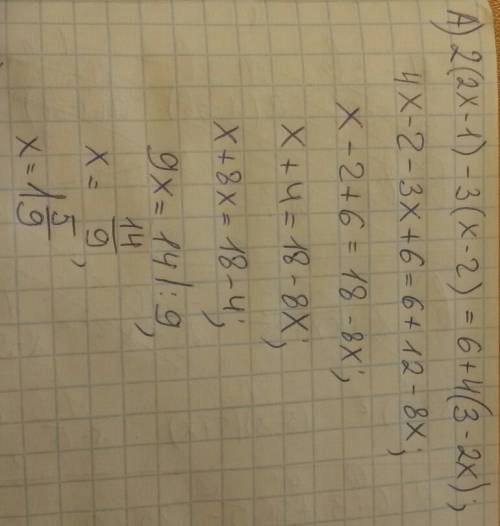 А) 2(2x-1)-3(x-2)=6+4(3-2x);
4x-2-3x+6=6+12-8x;
x-2+6=18-8x;
x+4=18-8x;
x+8x=18-4;
9x=14|:9;
x=14/9;
x=1 5/9